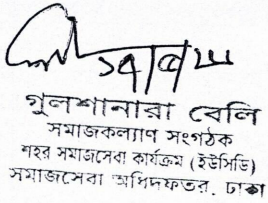 গুলশানারা বেলি
সমাজকল্যাণ সংগঠক
শহর সমাজসেবা কার্যক্রম (ইউসিডি)
সমাজসেবা অধিদফতর, ঢাকা